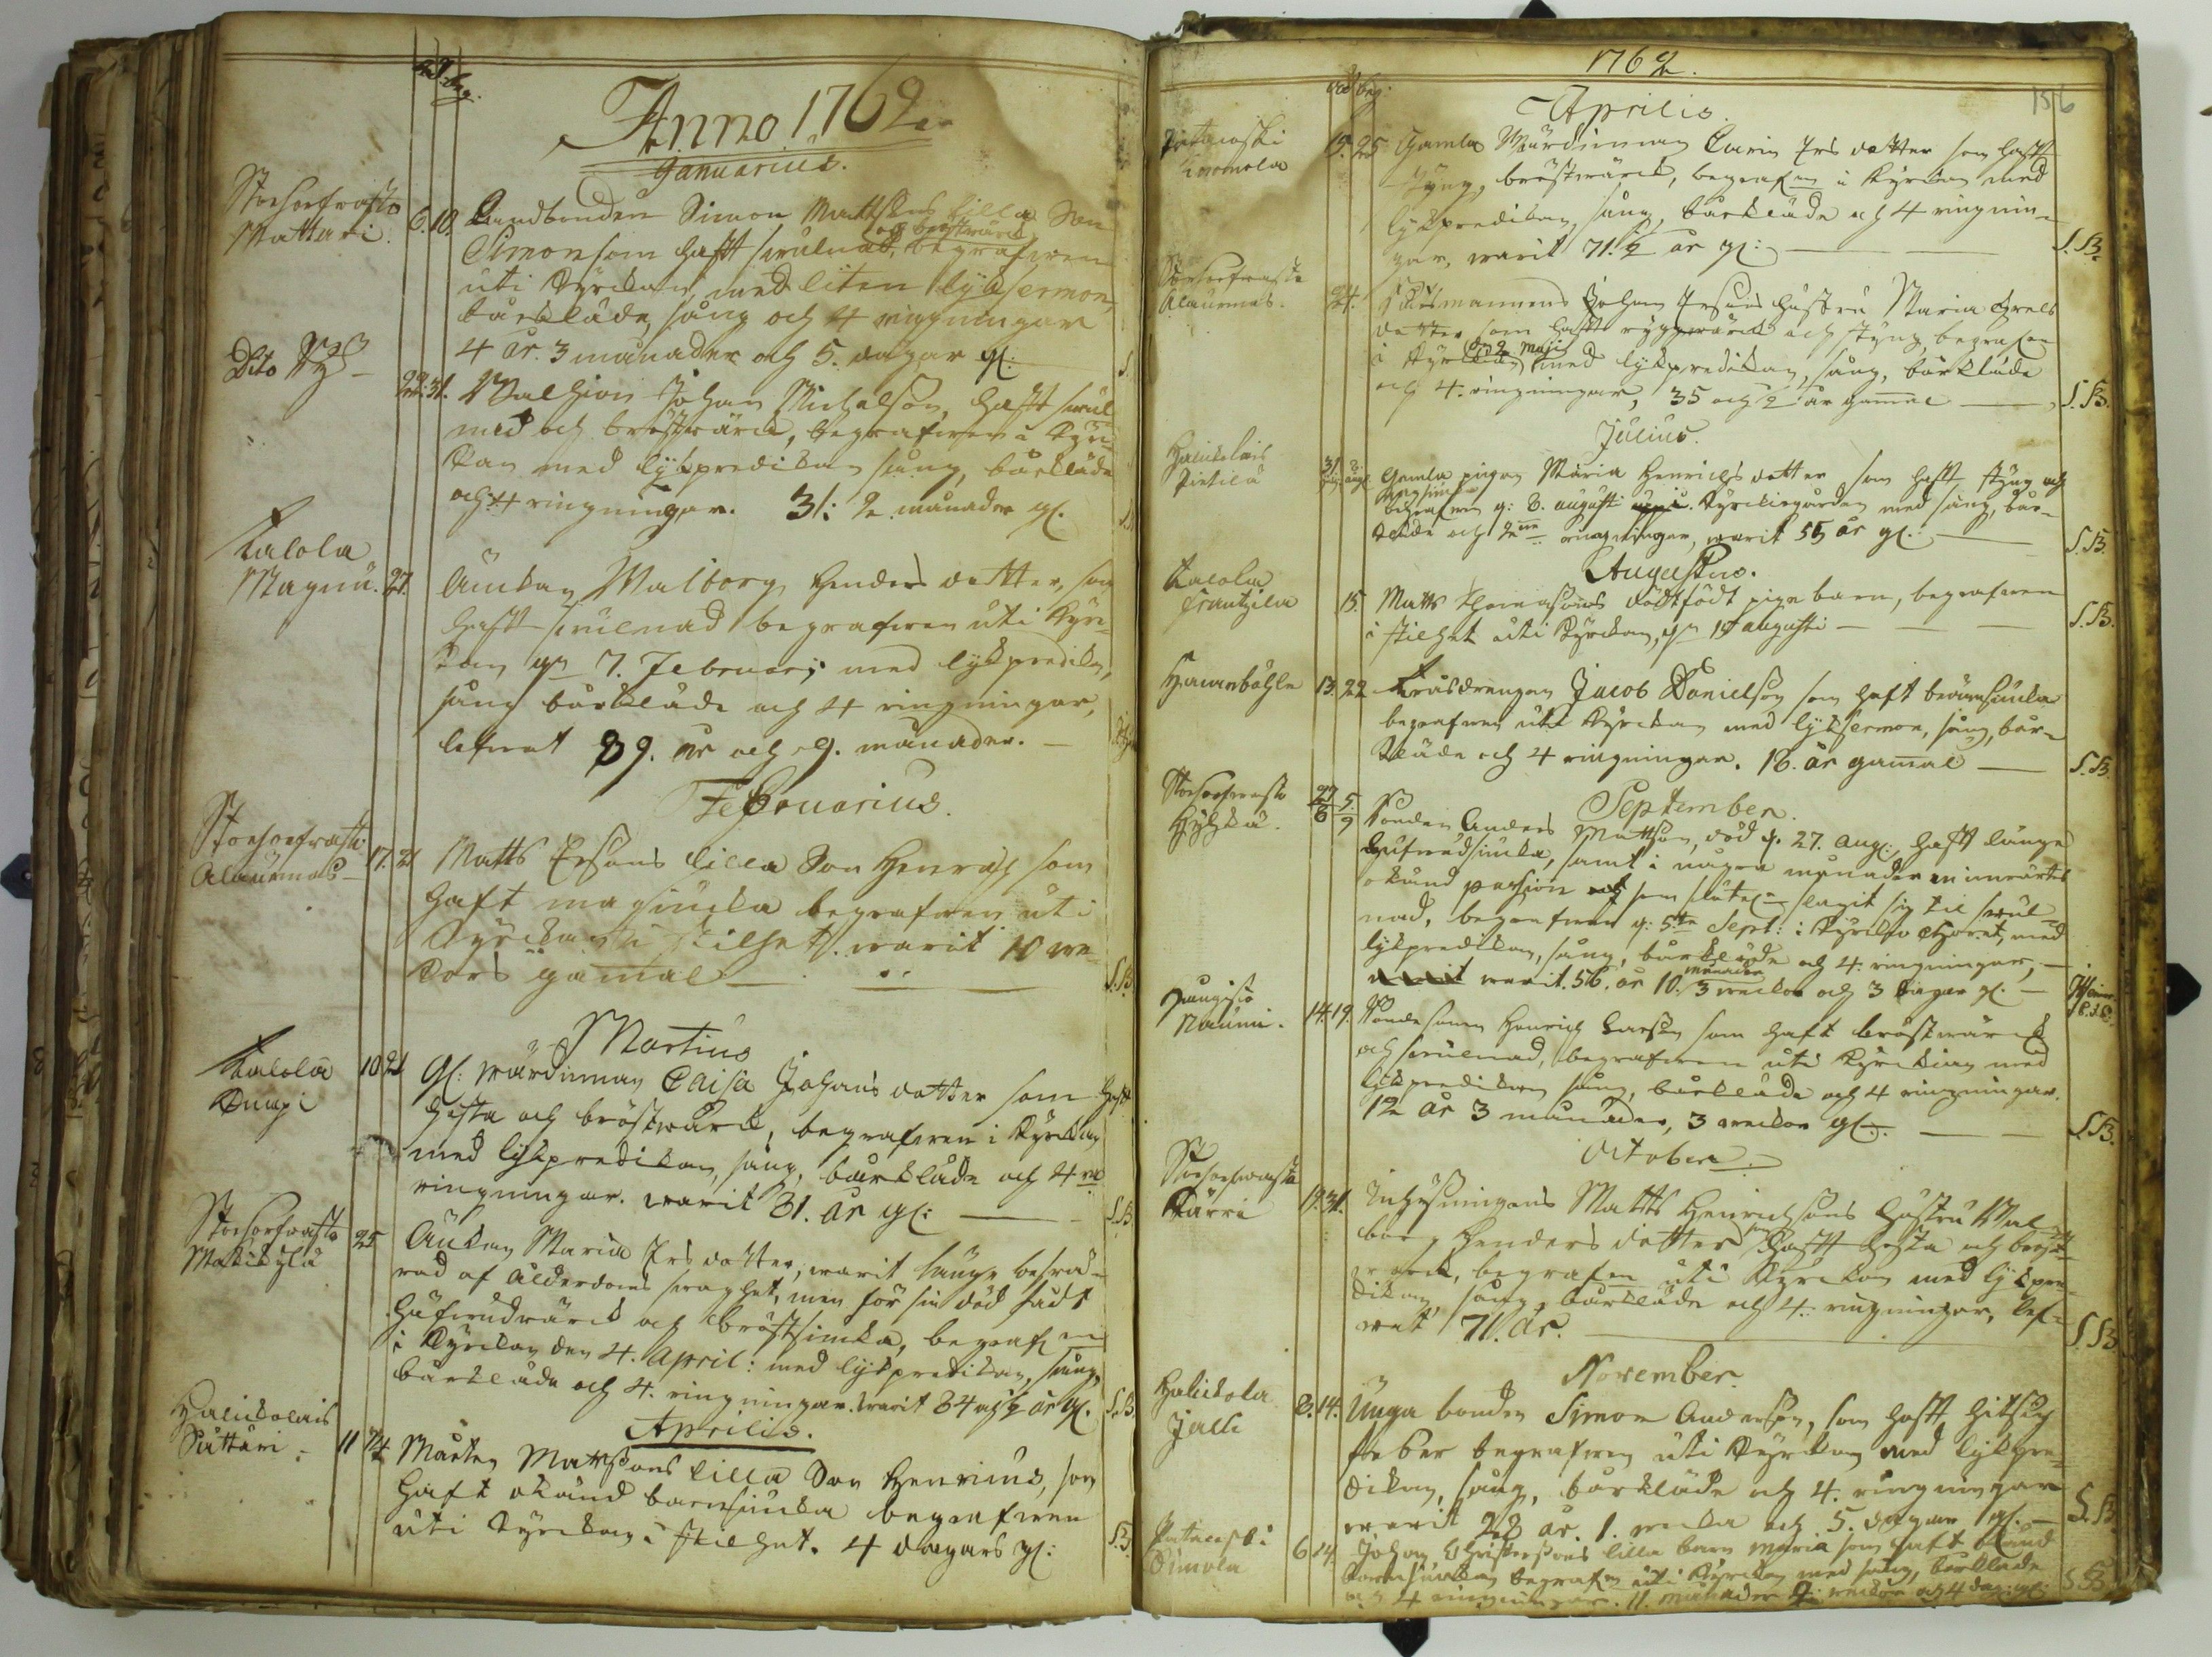 död. beg.
Anno 1762.
Januarius.
Storhoplaks
Mattari. 6. 10. Landbonden Simon Mattsons lilla Son
Simon som haft swulnad, och bröstwärck begrafwen
uti Kyrckan med liten lyksermon,
bårkläde, sång och 4 ringningar
4 år. 3 månader och 5. dagar gl:
Dito
22. 31. Johan Michelson, haft swul-
nad och bröstwärck, begrafwen i Kyr-
kan med lykpredikan sång, bårkläde
och 4 ringningar. 31: 2 månader gl.
Lalola
Magnu. 27. Änckan Walborg Henders dotter, som
haft swulnad begrafwen uti Kyr-
kan dn 7. Februarj med lykpredikan,
sång bårkläde och 4 ringningar,
lefwat 89. år och 9. månader.
Februarius.
Alaunmas 17. 21 Matts Ersons lilla Son Henrich som
haft magsiucka begrafwen uti
Kyrckan i stilhet. warit 10 we-
kors gamal S.B.
Martius
Lalola 10 21 Gl: wärdinnan Caisa Johans dotter som haft
hosta och bröstwärck, begrafwen i Kyrckan
med lijkpredikan, sång, bårkläde och 4
ringningar. warit 81. år gl: S.B.
Makikylä 25 Änckan Maria Ers dotter, warit länge beswä-
rad af ålderdoms swaghet, men för sin död fådt
hufwudwärck och bröstsiucka, begrafn
i Kyrckan den 4. April: med lijkpredikan, sång,
bårkläde och 4. ringningar. warit 84 och ½ år gl. S.B.
Aprilis.
Halickolais
Suttari. 11 Mårten Mattsons lilla Son Henricus, som
haft okänd barnsiucka begrafwen
uti Kyrckan i stilhet. 4 dagars gl: S.B.
1762.
156
död beg:
Aprilis.
19. 25 Gamla Wärdinnan Carin Ers dotter som haft
styng, bröstwärck, begrafn i Kyrckan med
lijkpredikan, sång, bårkläde och 4 ringnin-
gar, warit 71.½ år gl: S.B.
Alaunmas. 24. Johan Ersons hustru Maria Grels
dotter som haft ryggwärck och styng, begrafn
i Kyrckan dn 2 Maji med lijkpredikan, sång, bårkläde
och 4. ringningar, 35 och ½ år gammal S.B.
Julius.
Halickolais
Pirtilä 31. Gamla pigan Maria Henrichs dotter som haft styng och
begrafwen d: 8. augusti Kyrckogården med sång, bår-
kläde och 2 ringningar, warit 55 år gl: S.B.
Augustus.
Lalola
Frantzila 15. Matts Thomasons dödfödt pige barn, begrafwen
i stilhet uti Kyrckan, dn 15 augusti S.B.
13. 22 Jacob Danielson som haft
begrafwen uti Kyrckan med lijksermon, sång, bår-
kläde och 4 ringningar. 18. år gammal S.B.
September.
27/8 5/9 Bonden Anders Mattson, död d. 27. Aug:, haft länge
hufwudsiucka, samt i några månader en inwärtes
okänd passion som slutel. slagit sig til swul-
nad, begrafwen d: 5te Sept: i Kyrcko Choret, med
lijkpredikan, sång, bårkläde och 4. ringningar,
warit. 56. år 10. månader 3 weckor och 3 dagar gl.
Naumi. 14. 19. Bondesonen Henrich Larson som haft bröstwärck
och swulnad, begrafwen uti Kyrckan med
lijkpredikan sång, bårkläde och 4 ringningar.
12 år 3 månader, 3 weckor gl. S.B.
October.
Kärri 19. 31. Inhysningens Matts Henrichsons hustru Wal-
borg Henders dotter som haft hosta och bröst-
wärck, begrafen uti Kyrckan med lijkpre-
dikan, sång, bårkläde och 4. ringningar, lef-
wat 71. år. S.B.
November.
Halickola
Jalli 8. 14. Unga bonden Simon Anderson, som haft hitsig
feber begrafwen uti Kyrckan med lijkpre-
dikan, sång, bårkläde och 4. ringningar
warit 28 år. 1. wecka och 5. dagar gl. S.B.
Simola 6 14. Johan Christersons lilla barn Maria som haft okänd
barnsiucka begrafn uti Kyrckan med sång, bårkläde
och 4 ringningar. 11. månader 2 weckor och 4 dag: gl: S.B.